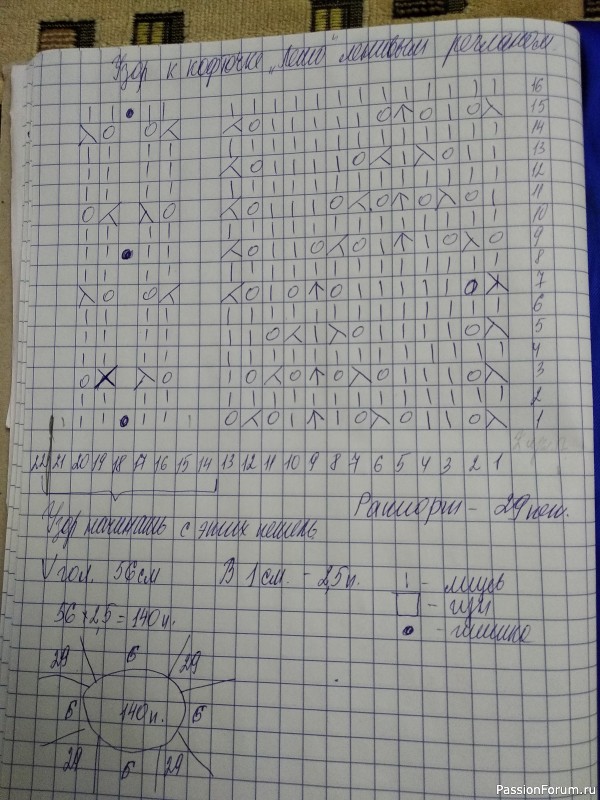 Узор к кофточке "Лето" ленивым регланом
16
15
14
13
12
11
10
9
8
7
6
5
4
3
2
1
22 21 20 19 18 17 16 15 14 13 12 11 10 9 8 7 6 5 4 3 2 1
Раппорт - 29 пет.
Узор начинать с этих петель
V гол. 56 см В 1 см. - 2,5 п.
I - лицев
56 × 2,5 = 140 п.
- изн
- шишка
29 6 29
6 140 п. 6
29 6 29
PassionForum.ru